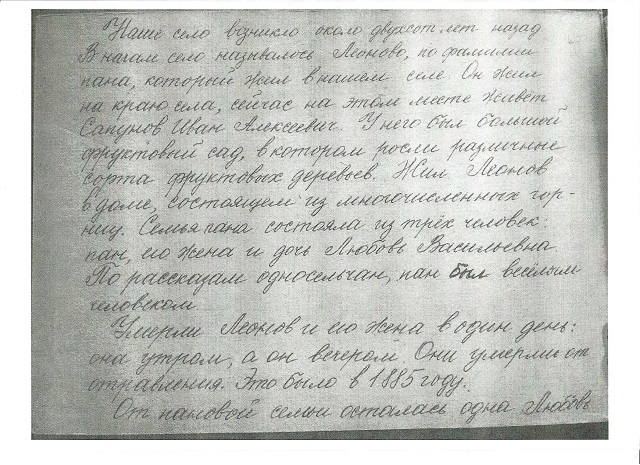 Наше село возникло около двухсот лет назад
В начале село называлось Леоново, по фамилии
пана, который жил в нашем селе. Он жил
на краю села, сейчас на этом месте живет
Сапунов Иван Алексеевич. У него был большой
фруктовый сад, в котором росли различные
сорта фруктовых деревьев. Жил Леонов
в доме, состоящем из многочисленных гор-
ниц. Семья пана состояла из трёх человек:
пан, его жена и дочь Любовь Васильевна.
По рассказам односельчан, пан был весёлым
человеком.
Умерли Леонов и его жена в один день:
она утром, а он вечером. Они умерли от
отравления. Это было в 1885 году.
От пановой семьи осталась одна Любовь